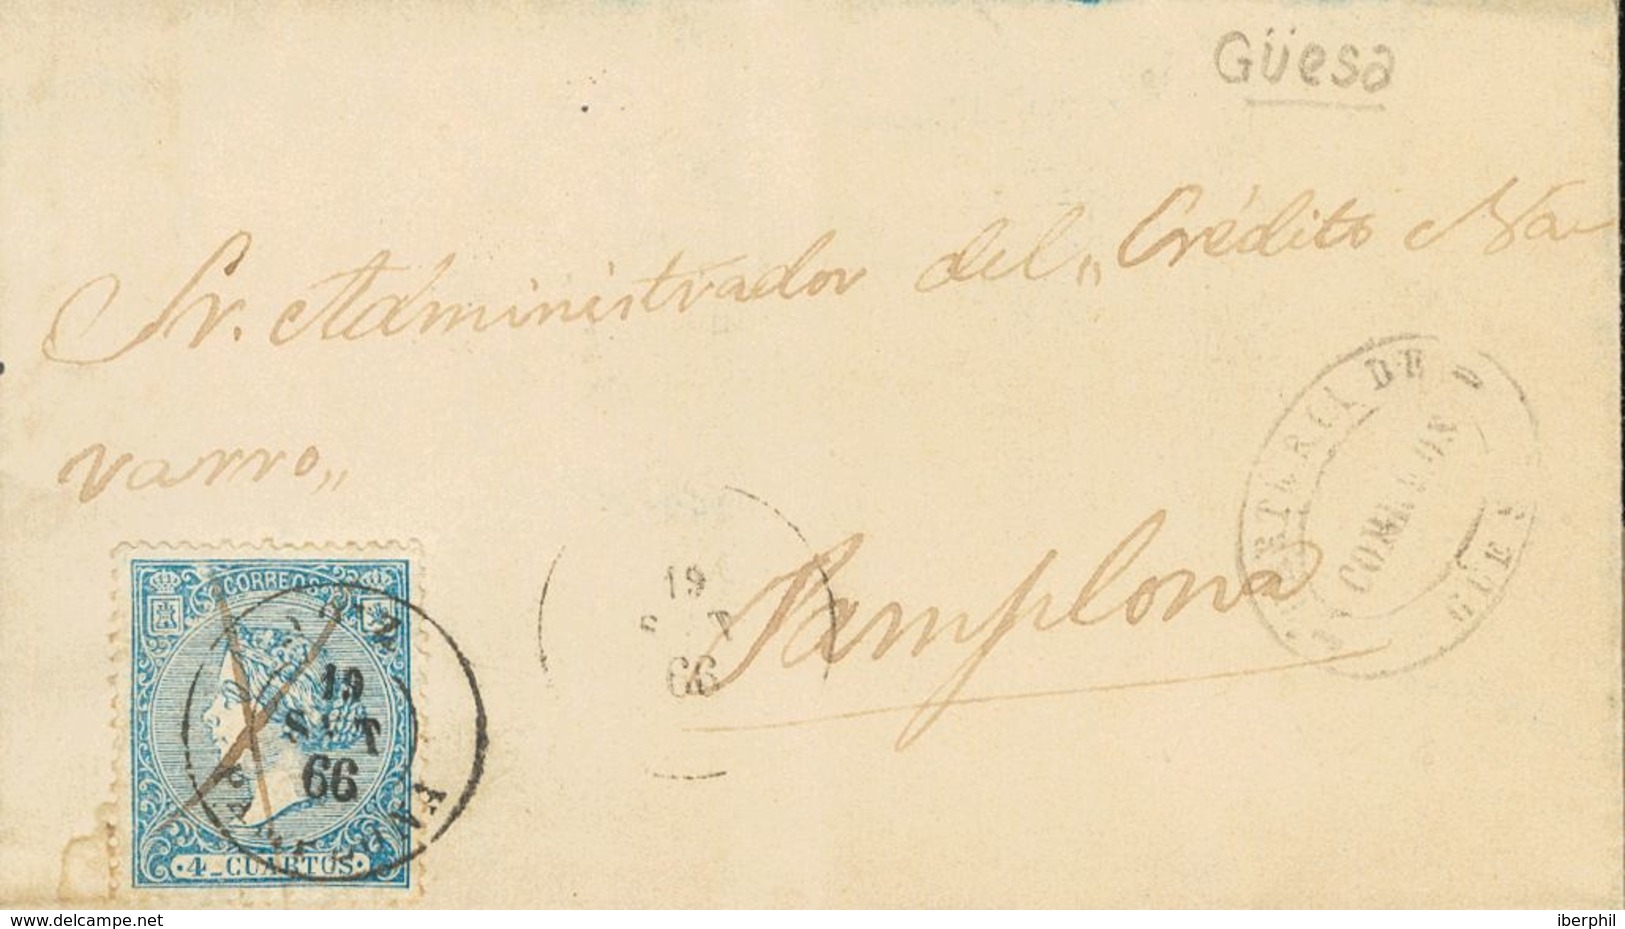 Güesa
Sr. Administrador del „Crédito Na-
varro„
Pamplona
CORREOS
19
SET
66
PAMPLONA
4_CUARTOS
19
66
DE
CORREOS
www.delcampe.net
iberphil